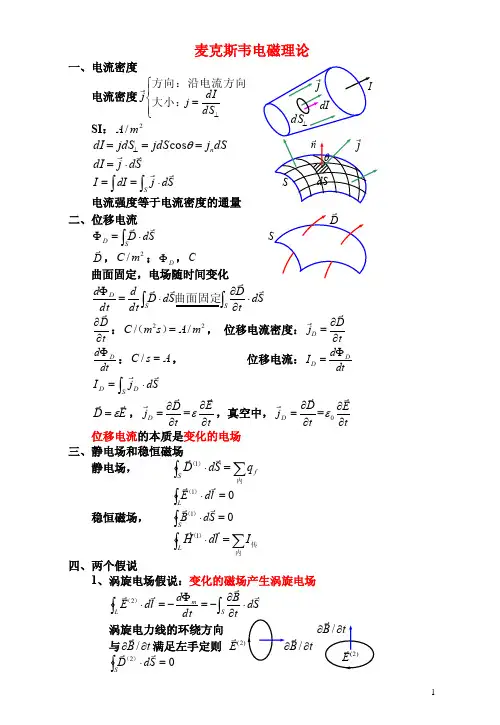 麦克斯韦电磁理论
一、电流密度
电流密度 $\vec{j}\begin{cases}方向：沿电流方向\\大小：j=\dfrac{dI}{dS_\perp}\end{cases}$
SI：$A/m^2$
$dI=jdS_\perp=jdS\cos\theta=j_ndS$
$dI=\vec{j}\cdot d\vec{S}$
$I=\int dI=\int_S\vec{j}\cdot d\vec{S}$
电流强度等于电流密度的通量
$\vec{j}$ $I$ $dI$ $dS_\perp$
$\vec{n}$ $\vec{j}$ $\theta$ $S$ $dS$
二、位移电流
$\Phi_D=\int_S\vec{D}\cdot d\vec{S}$
$\vec{D}$，$C/m^2$；$\Phi_D$，$C$
$\vec{D}$ $S$
曲面固定，电场随时间变化
$\dfrac{d\Phi_D}{dt}=\dfrac{d}{dt}\int_S\vec{D}\cdot d\vec{S}\underline{曲面固定}\int_S\dfrac{\partial\vec{D}}{\partial t}\cdot d\vec{S}$
$\dfrac{\partial\vec{D}}{\partial t}$：$C/（m^2s）=A/m^2$， 位移电流密度：$\vec{j}_D=\dfrac{\partial\vec{D}}{\partial t}$
$\dfrac{d\Phi_D}{dt}$：$C/s=A$， 位移电流：$I_D=\dfrac{d\Phi_D}{dt}$
$I_D=\int_S\vec{j}_D\cdot d\vec{S}$
$\vec{D}=\varepsilon\vec{E}$，$\vec{j}_D=\dfrac{\partial\vec{D}}{\partial t}=\varepsilon\dfrac{\partial\vec{E}}{\partial t}$，真空中，$\vec{j}_D=\dfrac{\partial\vec{D}}{\partial t}=\varepsilon_0\dfrac{\partial\vec{E}}{\partial t}$
位移电流的本质是变化的电场
三、静电场和稳恒磁场
静电场， $\oint_S\vec{D}^{(1)}\cdot d\vec{S}=\sum_{内}q_f$
$\oint_L\vec{E}^{(1)}\cdot d\vec{l}=0$
稳恒磁场， $\oint_S\vec{B}^{(1)}\cdot d\vec{S}=0$
$\oint_L\vec{H}^{(1)}\cdot d\vec{l}=\sum_{内}I_{传}$
四、两个假说
1、涡旋电场假说：变化的磁场产生涡旋电场
$\oint_L\vec{E}^{（2）}\cdot d\vec{l}=-\dfrac{d\Phi_m}{dt}=-\int_S\dfrac{\partial\vec{B}}{\partial t}\cdot d\vec{S}$
涡旋电力线的环绕方向
与$\partial\vec{B}/\partial t$满足左手定则
$\vec{E}^{(2)}$ $\partial\vec{B}/\partial t$
$\partial\vec{B}/\partial t$ $\vec{E}^{(2)}$
$\oint_S\vec{D}^{（2）}\cdot d\vec{S}=0$
1